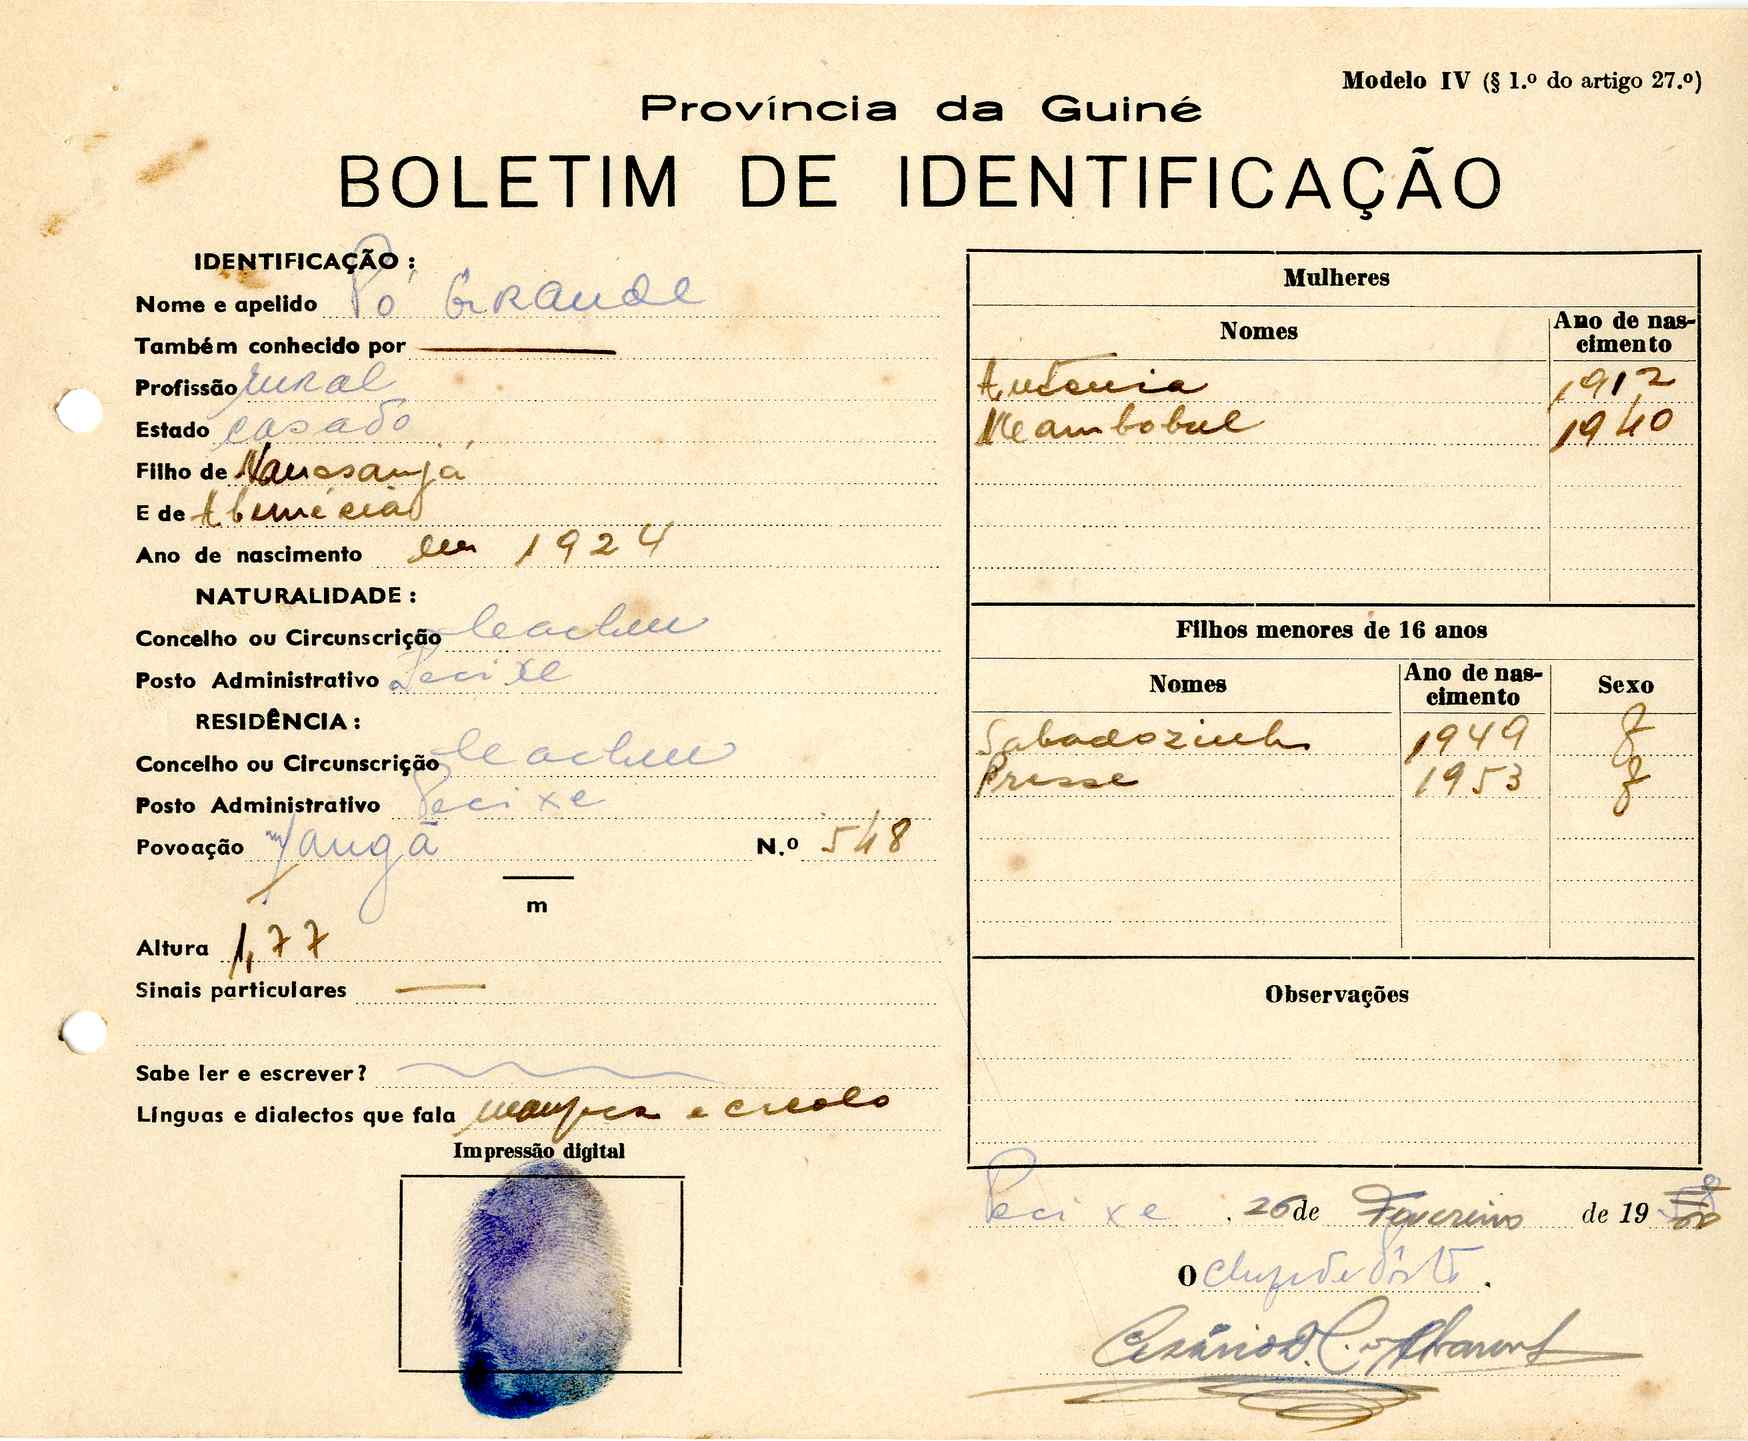 Modelo IV (§ 1.º do artigo 27.º)
Província da Guiné
BOLETIM DE IDENTIFICAÇÃO
IDENTIFICAÇÃO :
Nome e apelido Pó Grande
Também conhecido por
Profissão rural
Estado casado
Filho de
E de
Ano de nascimento em 1924
NATURALIDADE :
Concelho ou Circunscrição Cacheu
Posto Administrativo Pecixe
RESIDÊNCIA :
Concelho ou Circunscrição Cacheu
Posto Administrativo Pecixe
Povoação N.º 548
m
Altura 1,77
Sinais particulares
Sabe ler e escrever?
Línguas e dialectos que fala e creolo
Impressão digital
Mulheres
Nomes Ano de nas-
cimento
Antonia 1912
1940
Filhos menores de 16 anos
Nomes Ano de nas-
cimento Sexo
Sabadozinho 1949 f
1953 f
Observações
Pecixe 26 de Fevereiro de 19
O Chefe de Pôsto.